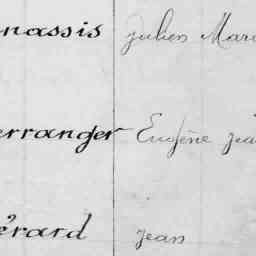 nassis Julien Mari
erranger Eugène Jea
érard Jean